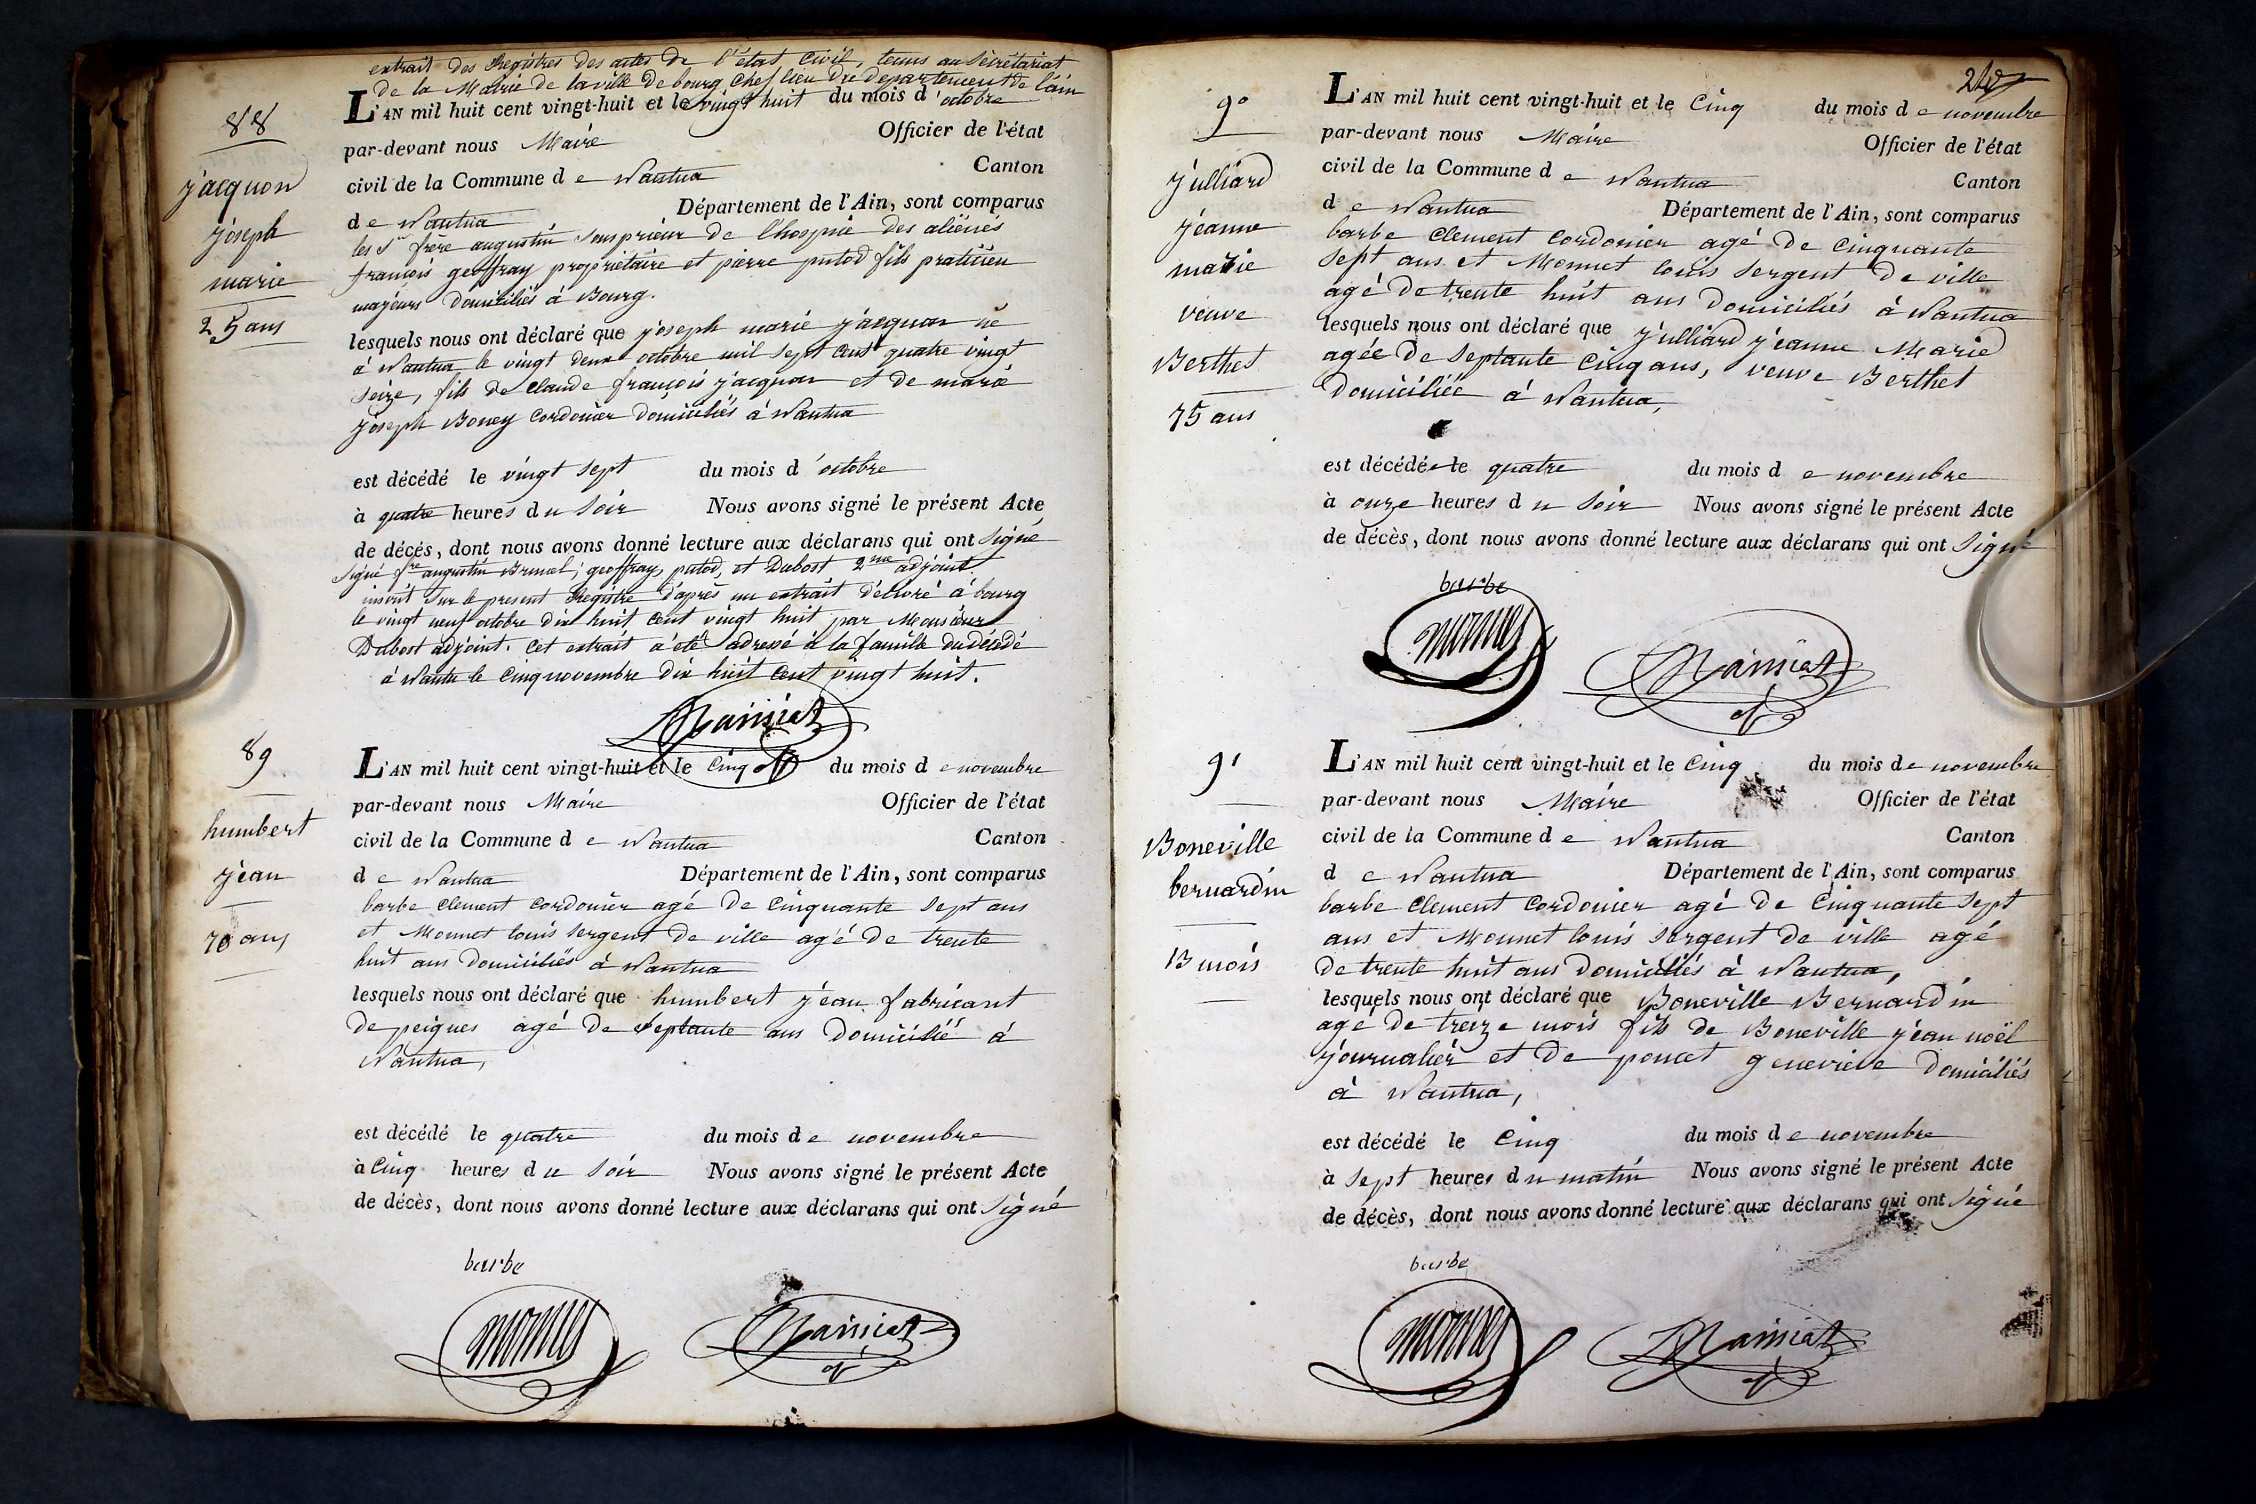 extrait des Registres des actes de l'état civil, tenus au Sécrétariat
de la Mairie de la ville de bourg chef lieu du departement de l'ain
88
L'AN mil huit cent vingt-huit et le vingt huit du mois d'octobre
par-devant nous Maire Officier de l'état
civil de la Commune de Nantua Canton
de Nantua Département de l'Ain, sont comparus
jacquon
joseph
marie
25 ans
les Srs frère augustin sous prieur de l'hospice des aliénés
françois geoffray propriétaire et pierre putod fils praticien
majeurs domiciliés à Bourg.
lesquels nous ont déclaré que joseph marie jacquon né
à Nantua le vingt deux octobre mil sept cent quatre vingt
seize, fils de claude françois jacquon et de marie
joseph Boney cordonier domiciliés à Nantua
est décédé le vingt sept du mois d'octobre
à quatre heures du soir Nous avons signé le présent Acte
de décès, dont nous avons donné lecture aux déclarans qui ont signé
signé fre augustin Brunel, geoffray, putod, et Dubost 2me adjoint.
inscrit sur le present Registre d'après un extrait délivré à bourg
le vingt neuf octobre dix huit cent vingt huit par Monsieur
Dubost adjoint. cet extrait a été adressé à la famille du décédé
à Nantua le cinq novembre dix huit cent vingt huit.
89
L'AN mil huit cent vingt-huit et le cinq du mois de novembre
par-devant nous Maire Officier de l'état
civil de la Commune de Nantua Canton
de Nantua Département de l'Ain, sont comparus
humbert
jean
70 ans
barbe clement cordonier agé de cinquante sept ans
et Monnet louis sergent de ville agé de trente
huit ans domiciliés à Nantua
lesquels nous ont déclaré que humbert jean fabricant
de peignes agé de septante ans domicilié à
Nantua,
est décédé le quatre du mois de novembre
à cinq heures du soir Nous avons signé le présent Acte
de décès, dont nous avons donné lecture aux déclarans qui ont signé
barbe
monnet
90
L'AN mil huit cent vingt-huit et le cinq du mois de novembre
par-devant nous Maire Officier de l'état
civil de la Commune de Nantua Canton
de Nantua Département de l'Ain, sont comparus
julliard
jeanne
marie
veuve
Berthet
75 ans
barbe clement cordonier agé de cinquante
sept ans et Monnet louis sergent de ville
agé de trente huit ans domiciliés à Nantua
lesquels nous ont déclaré que julliard jeanne Marie
agée de septante cinq ans, veuve Berthet
domiciliée à Nantua,
est décédée le quatre du mois de novembre
à onze heures du soir Nous avons signé le présent Acte
de décès, dont nous avons donné lecture aux déclarans qui ont signé
barbe
monnet
91
L'AN mil huit cent vingt-huit et le cinq du mois de novembre
par-devant nous Maire Officier de l'état
civil de la Commune de Nantua Canton
de Nantua Département de l'Ain, sont comparus
Boneville
bernardin
13 mois
barbe clement cordonier agé de cinquante sept
ans et Monnet louis sergent de ville agé
de trente huit ans domiciliés à Nantua,
lesquels nous ont déclaré que Boneville Bernardin
agé de treize mois fils de Boneville jean noël
journalier et de poncet genevieve domiciliés
à Nantua,
est décédé le cinq du mois de novembre
à sept heures du matin Nous avons signé le présent Acte
de décès, dont nous avons donné lecture aux déclarans qui ont signé
barbe
monnet